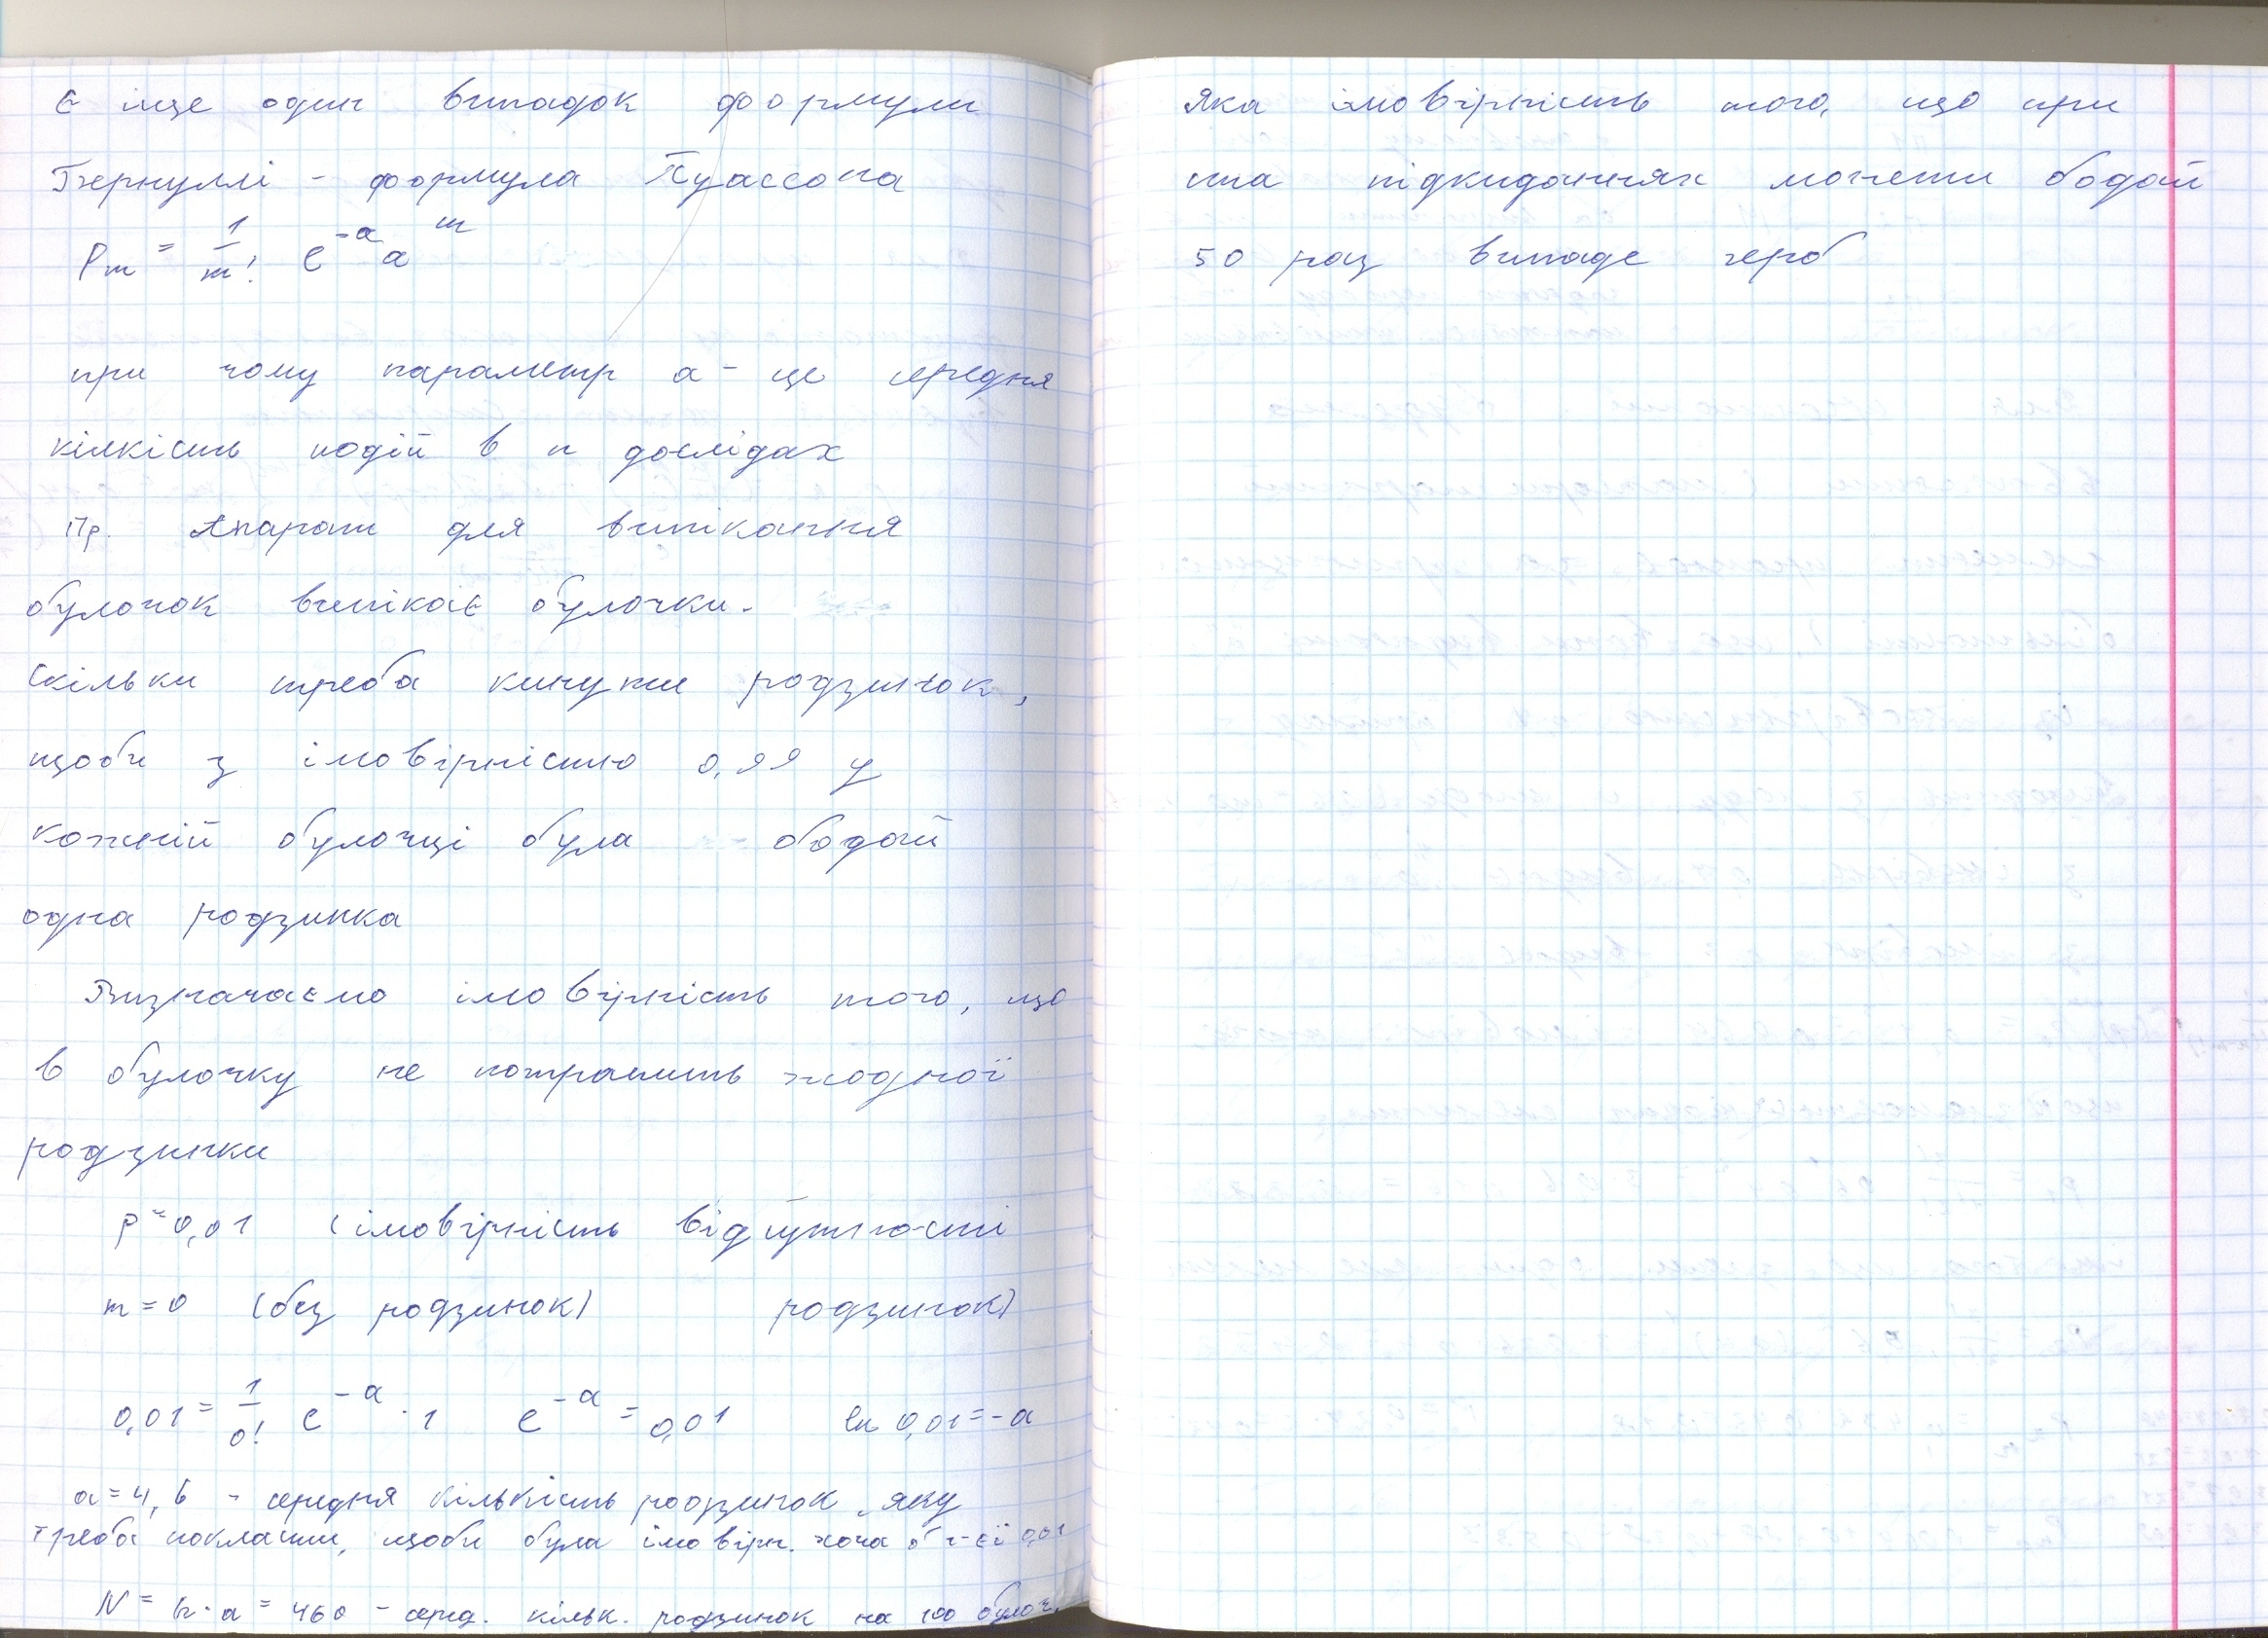 Є іще один випадок формули
Бернуллі - формула Пуассона
Pm = 1/m! e^-a a^m
при чому параметр а - це середня
кілкість подій в n дослідах
Пр. Апарат для випікання
булочок випікає булочки.
Скільки треба кинути родзинок,
щоби з імовірністю 0,99 у
кожній булочці була бодай
одна родзинка
Визначаємо імовірність того, що
в булочку не потрапить жодної
родзинки
p = 0,01 (імовірність відсутності
m = 0 (без родзинок) родзинок)
0,01 = 1/0! e^-a · 1 e^-a = 0,01 ln 0,01 = -a
a = 4,6 - середня кількість родзинок, яку
треба покласти, щоби була імовірн. хоча б 1-єї 0,01
N = n·a = 460 - серед. кільк. родзинок на 100 булоч.
Яка імовірність того, що при
ста підкиданнях монети бодай
50 раз випаде герб